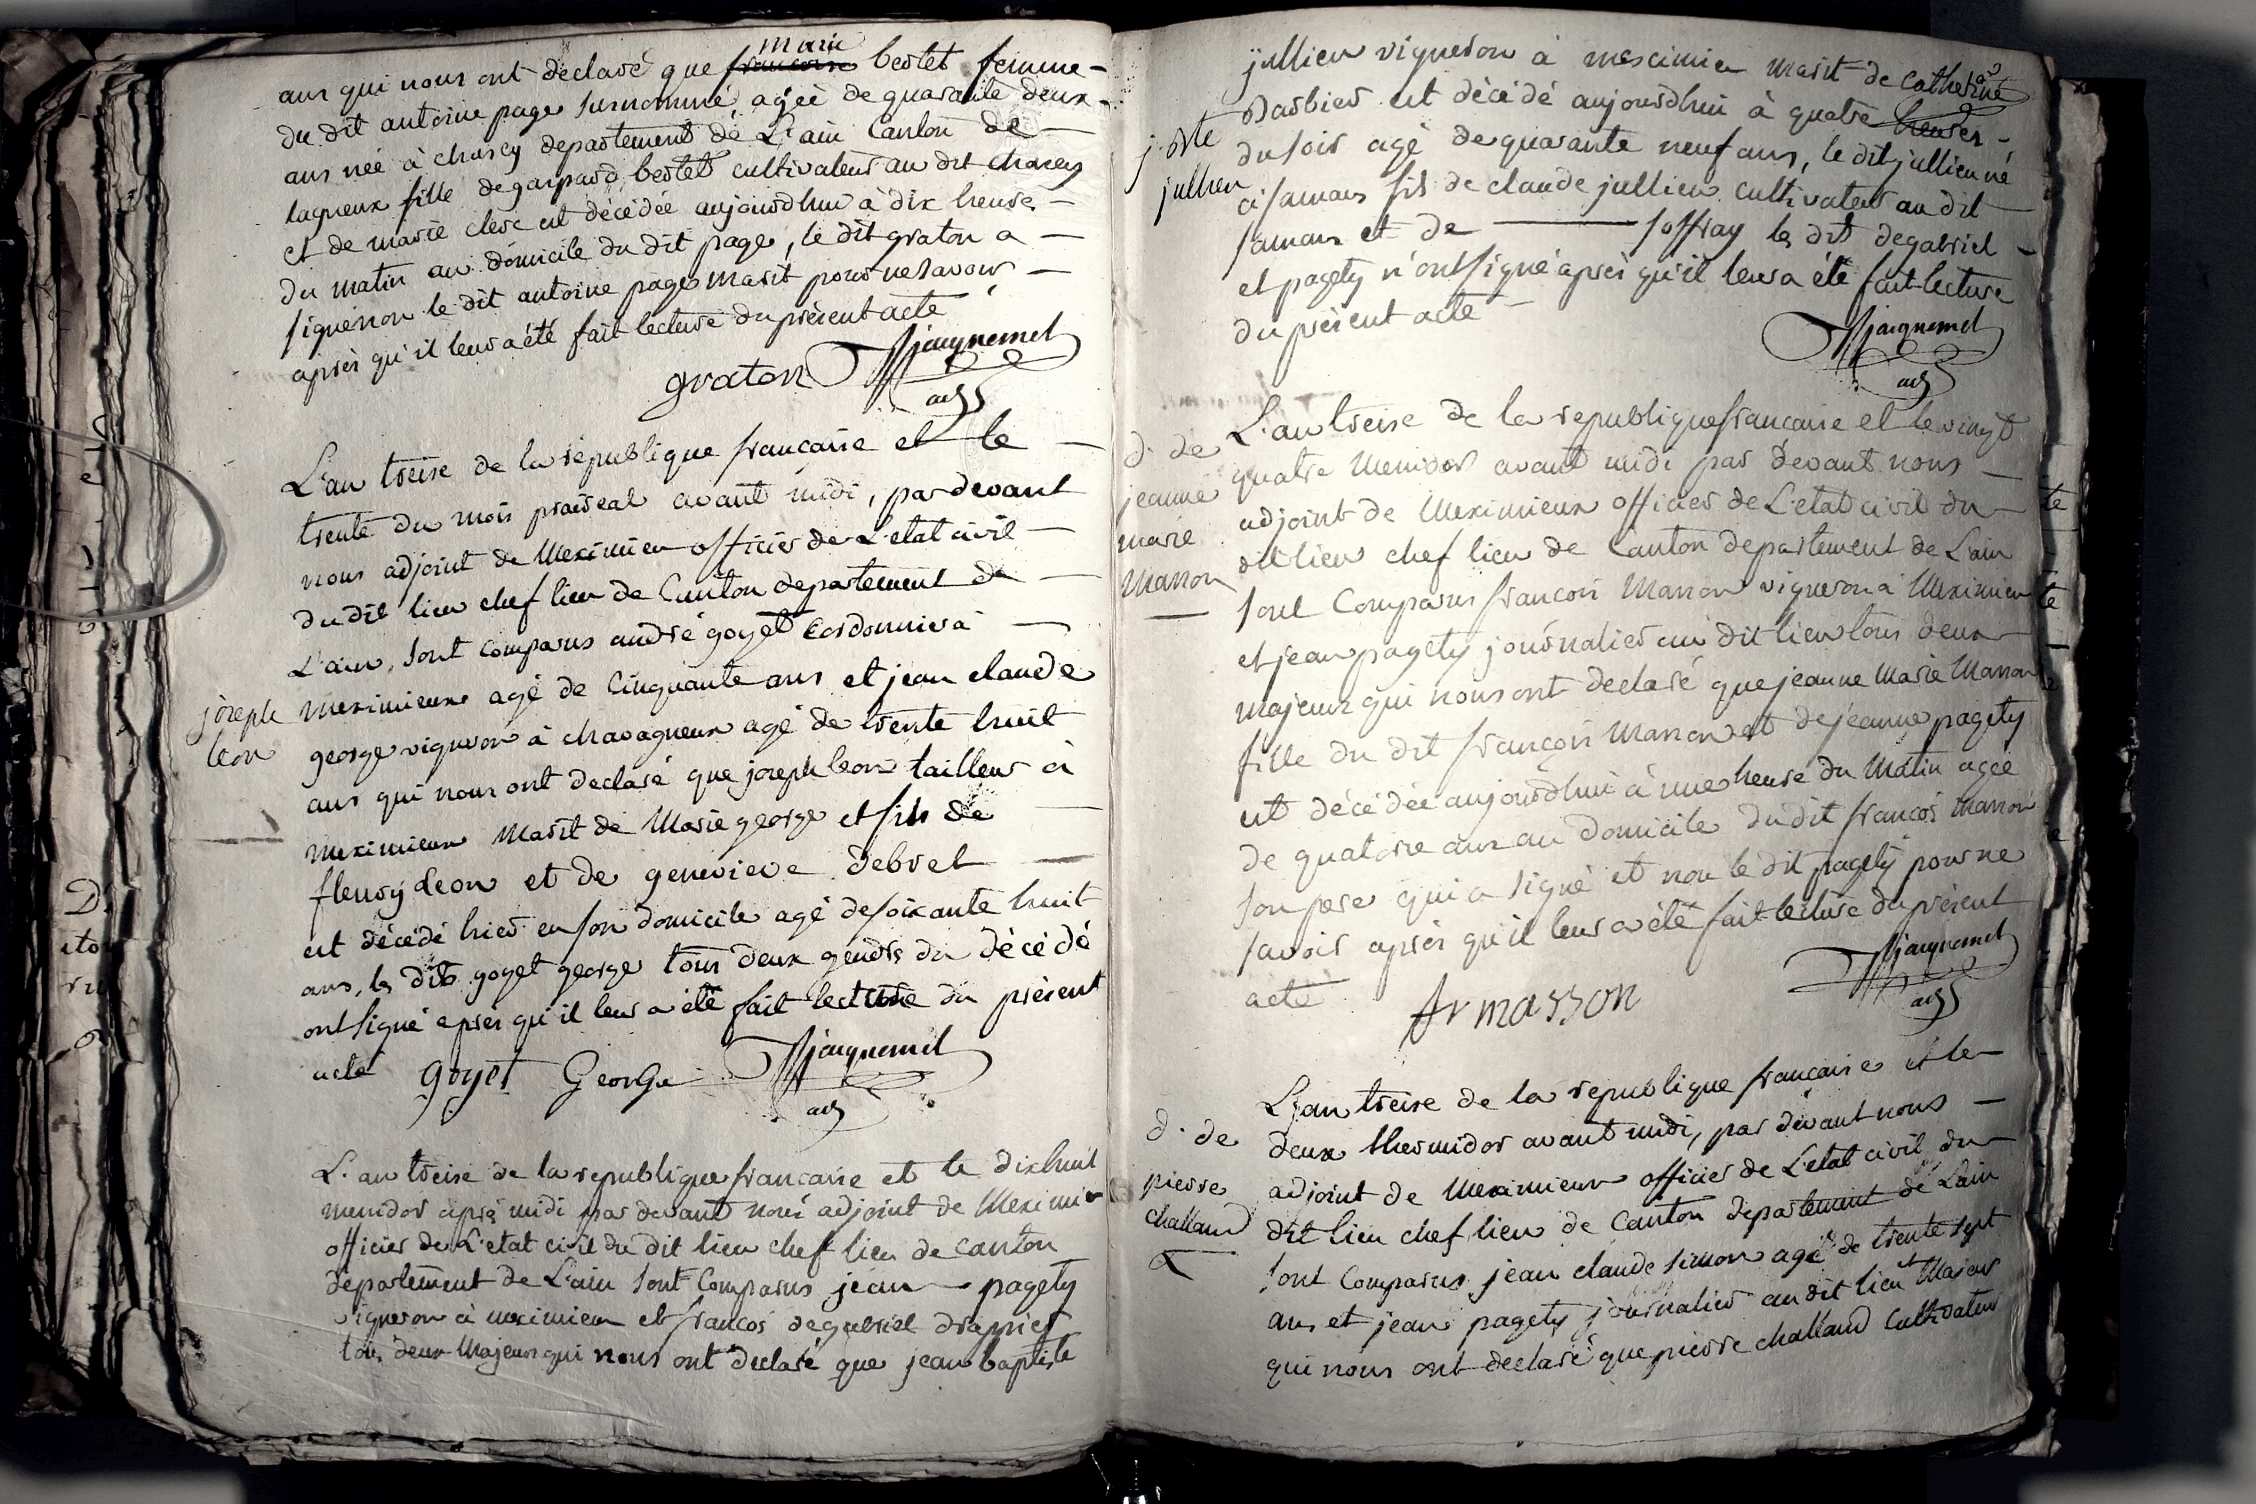 ans qui nous ont déclaré que françoise marie bertet femme
du dit antoine page surnommé, agée de quarante deux
ans née à charcy departement de L'ain Canton de
lagneux fille de gaspard bertet cultivateur au dit charcy
et de marie clerc est décédée aujourdhui à dix heures
du matin au domicile du dit page, le dit graton a
signé non le dit antoine page marit pour ne savoir
après qu'il leur a été fait lecture du présent acte
graton Jjacquemet
adj
L'an treise de la république francaise et le
trente du mois praireal avant midi, par devant
nous adjoint de Meximieu officier de L'etat civil
du dit lieu chef lieu de Canton departement de
L'ain, sont comparus andré goyet Cordonnier à
joseph
leon
meximieux agé de Cinquante ans et jean claude
george vigneron à chavagneux agé de trente huit
ans qui nous ont declaré que joseph leon tailleur à
meximieux Marit de Marie george et fils de
fleury Leon et de genevieve debret
est décédé hier en son domicile agé de soixante huit
ans, les dits goyet george tous deux gendre du décédé
ont signé après qu'il leur a été fait lecture du présent
acte goyet George Jjacquemet
adj
L'an treise de la republique francaise et le dixhuit
messidor après midi par devant nous adjoint de Meximieu
officier de L'etat civil du dit lieu chef lieu de canton
departement de L'ain sont Comparus jean pagety
vigneron à meximieu et francois degabriel drapier
tous deux Majeurs qui nous ont declaré que jean baptiste
jullien vigneron à meximieu marit de Catherine
j. Bte
jullien
Barbier est décédé aujourdhui à quatre heures
du soir agé de quarante neuf ans, le dit jullien né
à Samans fils de claude jullien cultivateur au dit
Samans et de soffray les dits degabriel
et pagety n'ont signé après qu'il leur a été fait lecture
du présent acte
Jjacquemet
adj
d. de
jeanne
marie
Masson
L'an treise de la republique francaise et le vingt
quatre Messidor avant midi par devant nous
adjoint de Meximieux officier de L'etat civil du
dit lieu chef lieu de Canton departement de L'ain
sont Comparus francois Masson vigneron à Meximieu
et jean pagety journalier au dit lieu tous deux
majeurs qui nous ont declaré que jeanne Marie Masson
fille du dit françois Masson et de jeanne pagety
est décédée aujourdhui à une heure du Matin agée
de quatorse ans au domicile du dit francois Masson
son pere qui a signé et non le dit pagety pour ne
savoir après qu'il leur a été fait lecture du présent
acte
Jjacquemet
adj
fr masson
d. de
pierre
challand
L'an treise de la republique francaise et le
deux thermidor avant midi, par devant nous
adjoint de Meximieux officier de L'etat civil du
dit lieu chef lieu de Canton departement de L'ain
sont Comparus jean claude simon agé de trente sept
ans et jean pagety journalier au dit lieu et Majeur
qui nous ont declaré que pierre challand Cultivateur